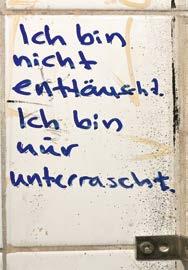 Ich bin
nicht
enttäuscht.
Ich bin
nur
unterrascht.